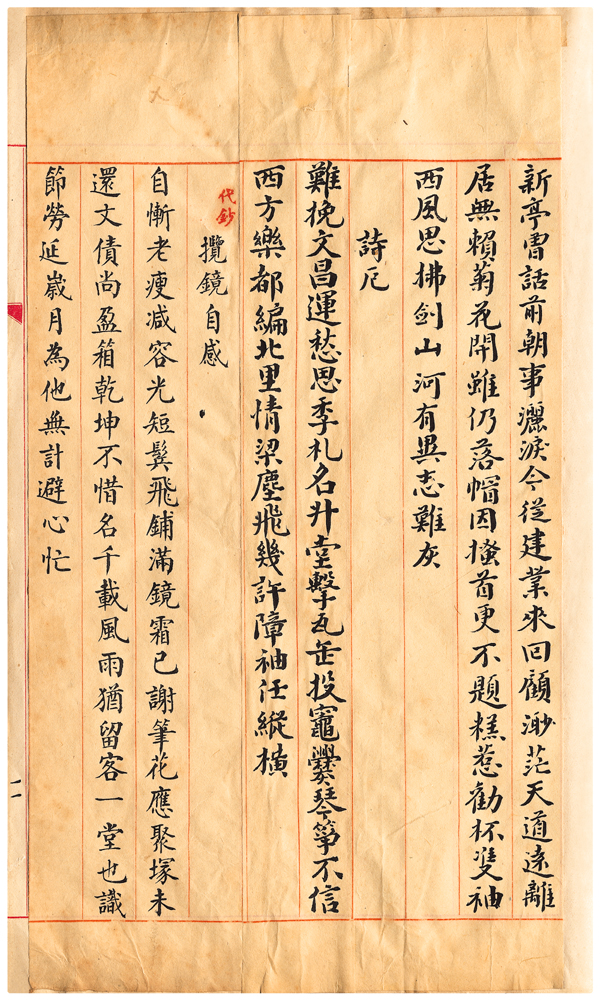 新亭曾話前朝事灑淚今從建業來回顧渺茫天道遠離
居無賴菊花開雖仍落帽因搔首更不題糕惹勸杯雙袖
西風思拂劍山河有異志難灰
詩厄
難挽文昌運愁思季札名升堂擊瓦缶投竈爨琴箏不信
西方樂都編北里情梁塵飛幾許障袖任縱橫
代鈔
攬鏡自感
自慚老瘦減容光短鬢飛鋪滿鏡霜已謝筆花應聚塚未
還文債尚盈箱乾坤不惜名千載風雨猶留客一堂也識
節勞延歲月為他無計避心忙
二